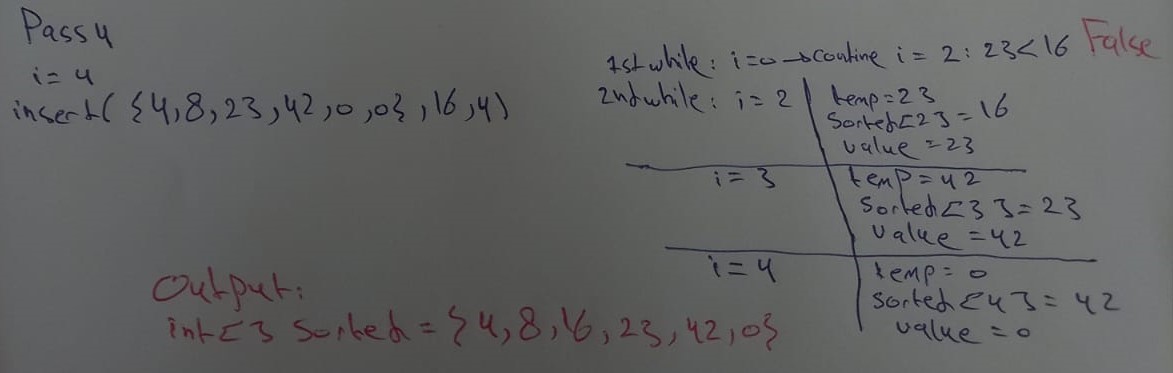 Pass 4
i = 4
insert( {4,8,23,42,0,0} ,16,4)
1st while: i=0 → contine i = 2: 23<16 False
2nd while: i = 2
temp=23
Sorted[2]=16
value =23
i = 3
temp=42
Sorted[3]=23
value =42
i = 4
temp= 0
Sorted[4]= 42
value =0
Output:
int[] Sorted = {4,8,16,23,42,0}